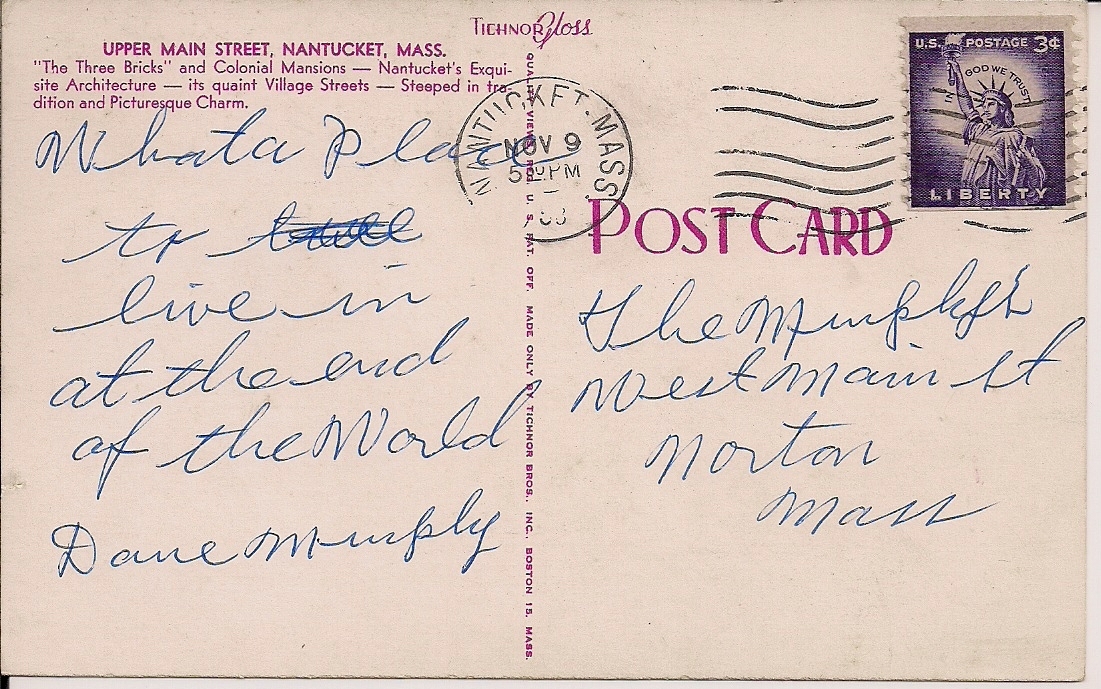 TICHNOR Gloss
UPPER MAIN STREET, NANTUCKET, MASS.
"The Three Bricks" and Colonial Mansions — Nantucket's Exqui-
site Architecture — its quaint Village Streets — Steeped in tra-
dition and Picturesque Charm.
What a Place
to
live in
at the end
of the World
Dave Murphy
QUALITY VIEWS REG. U. S. PAT. OFF. MADE ONLY BY TICHNOR BROS., INC., BOSTON 15, MASS.
NANTUCKET, MASS.
NOV 9
PM
U.S. POSTAGE 3¢
IN GOD WE TRUST
LIBERTY
POST CARD
The Murphy's
West Main St
Norton
Mass